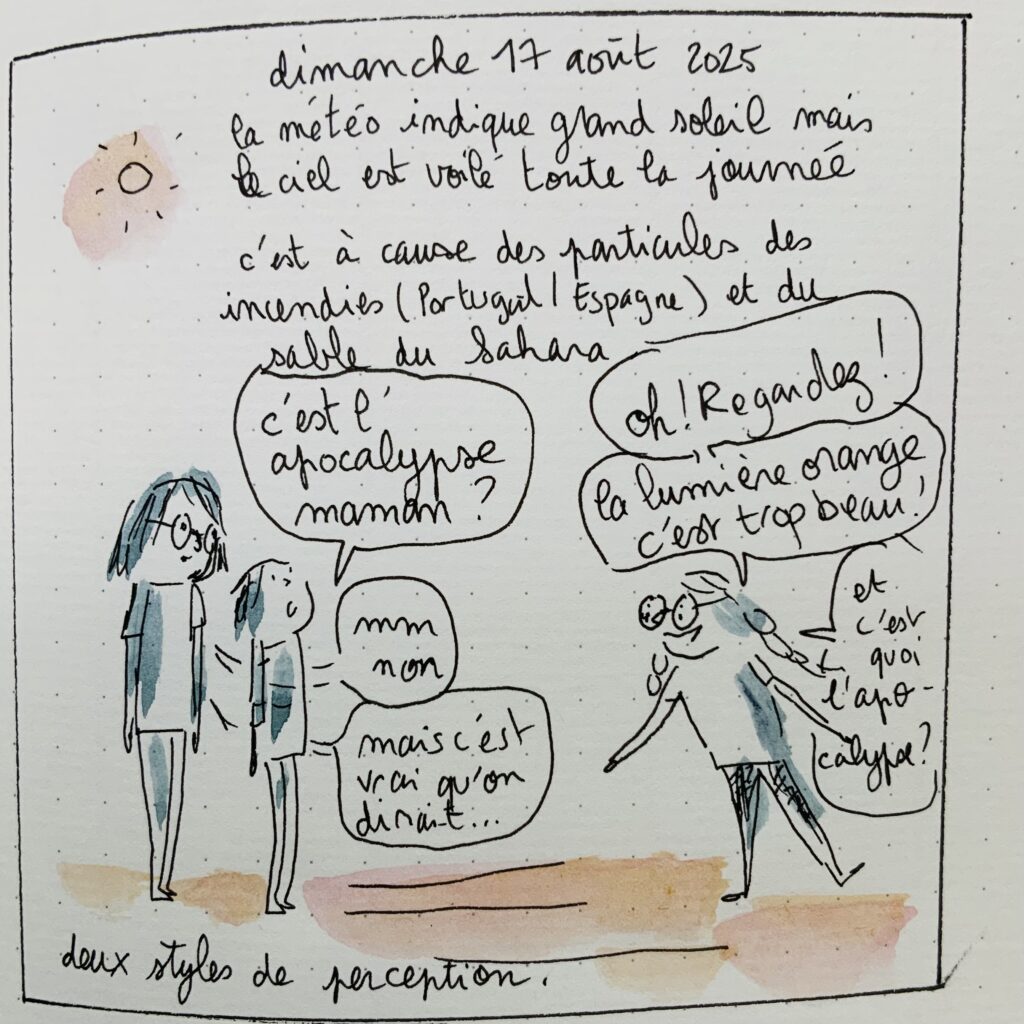 dimanche 17 août 2025
la météo indique grand soleil mais
le ciel est voilé toute la journée
c'est à cause des particules des
incendies (Portugal / Espagne) et du
sable du Sahara
c'est l'
apocalypse
maman ?
mm
non
mais c'est
vrai qu'on
dirait...
oh ! Regardez !
la lumière orange
c'est trop beau !
et
c'est
quoi
l'apo-
calypse ?
deux styles de perception.